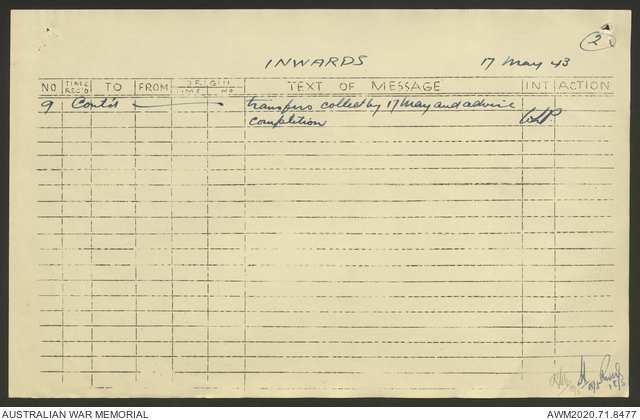 2
INWARDS 17 May 43
NO TIME REC'D TO FROM ORIGIN TIME NO TEXT OF MESSAGE INT ACTION
9 Cont'd transfers colled by 17 May and advise
completion
AUSTRALIAN WAR MEMORIAL AWM2020.71.8477